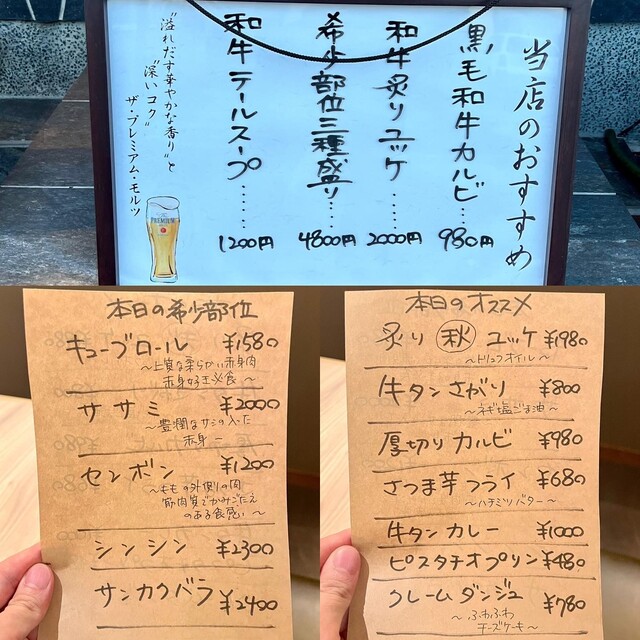 当店のおすすめ
黒毛和牛カルビ…980円
和牛炙りユッケ……2000円
希少部位三種盛り……4800円
和牛テールスープ……1200円
"溢れだす華やかな香り"と
"深いコク"
ザ・プレミアム・モルツ
PREMIUM
本日の希少部位
キューブロール ¥1580
～上質な柔らかい赤身肉
赤身好き必食～
ササミ ¥2000
～豊潤なサシの入った
赤身～
センボン ¥1200
～ももの外側の肉
筋肉質でかみごたえ
のある食感い～
シンシン ¥2300
サンカクバラ ¥2400
本日のオススメ
炙り 秋 ユッケ ¥1980
～トリュフオイル～
牛タンさがり ¥800
～ネギ塩ごま油～
厚切りカルビ ¥980
さつま芋フライ ¥680
～ハチミツバター～
牛タンカレー ¥1000
ピスタチオプリン ¥480
クレームダンジュ ¥780
～ふわふわ
チーズケーキ～